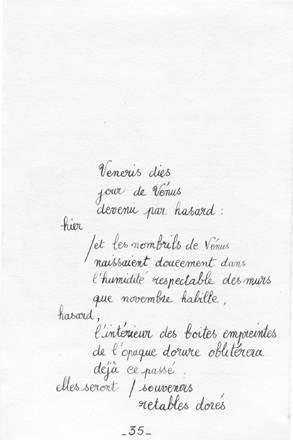 Veneris dies
jour de Vénus
devenu par hasard :
hier
/et les nombrils de Vénus
naissaient doucement dans
l'humidité respectable des murs
que novembre habille,
hasard,
l'intérieur des boites empreintes
de l'opaque dorure oblitérera
déjà ce passé.
elles seront / souvenirs
retables dorés
_35_